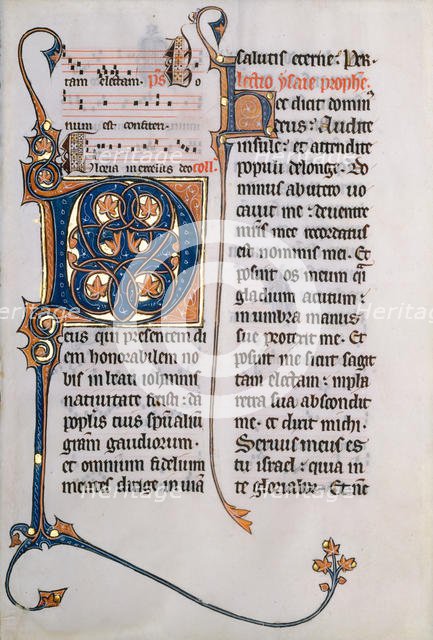 tam electam. ps Bo
num est confiten.
Gloria in excelsis deo coll.
Deus qui presentem di
em honorabilem no
bis in beati iohannis
natiuitate fecisti: da
populis tuis spualium
gram gaudiorum.
et omnium fidelium
mentes dirige in uiam
salutis eterne. Per.
lectio ysaie prophe.
Hec dicit domin
deus: Audite
insule: et attendite
populi de longe. Do
minus ab utero uo
cauit me: de uentre
matris mee recordatus
est nominis mei. Et
posuit os meum qi
gladium acutum:
in umbra manus
sue protexit me. Et
posuit me sicut sagit
tam electam: in pha
retra sua abscondit
me. et dixit michi.
Seruus meus es
tu israel: quia in
te gloriabor. Et nc
Heritage
Heritage
Heritage
Heritage
Heritage
Heritage